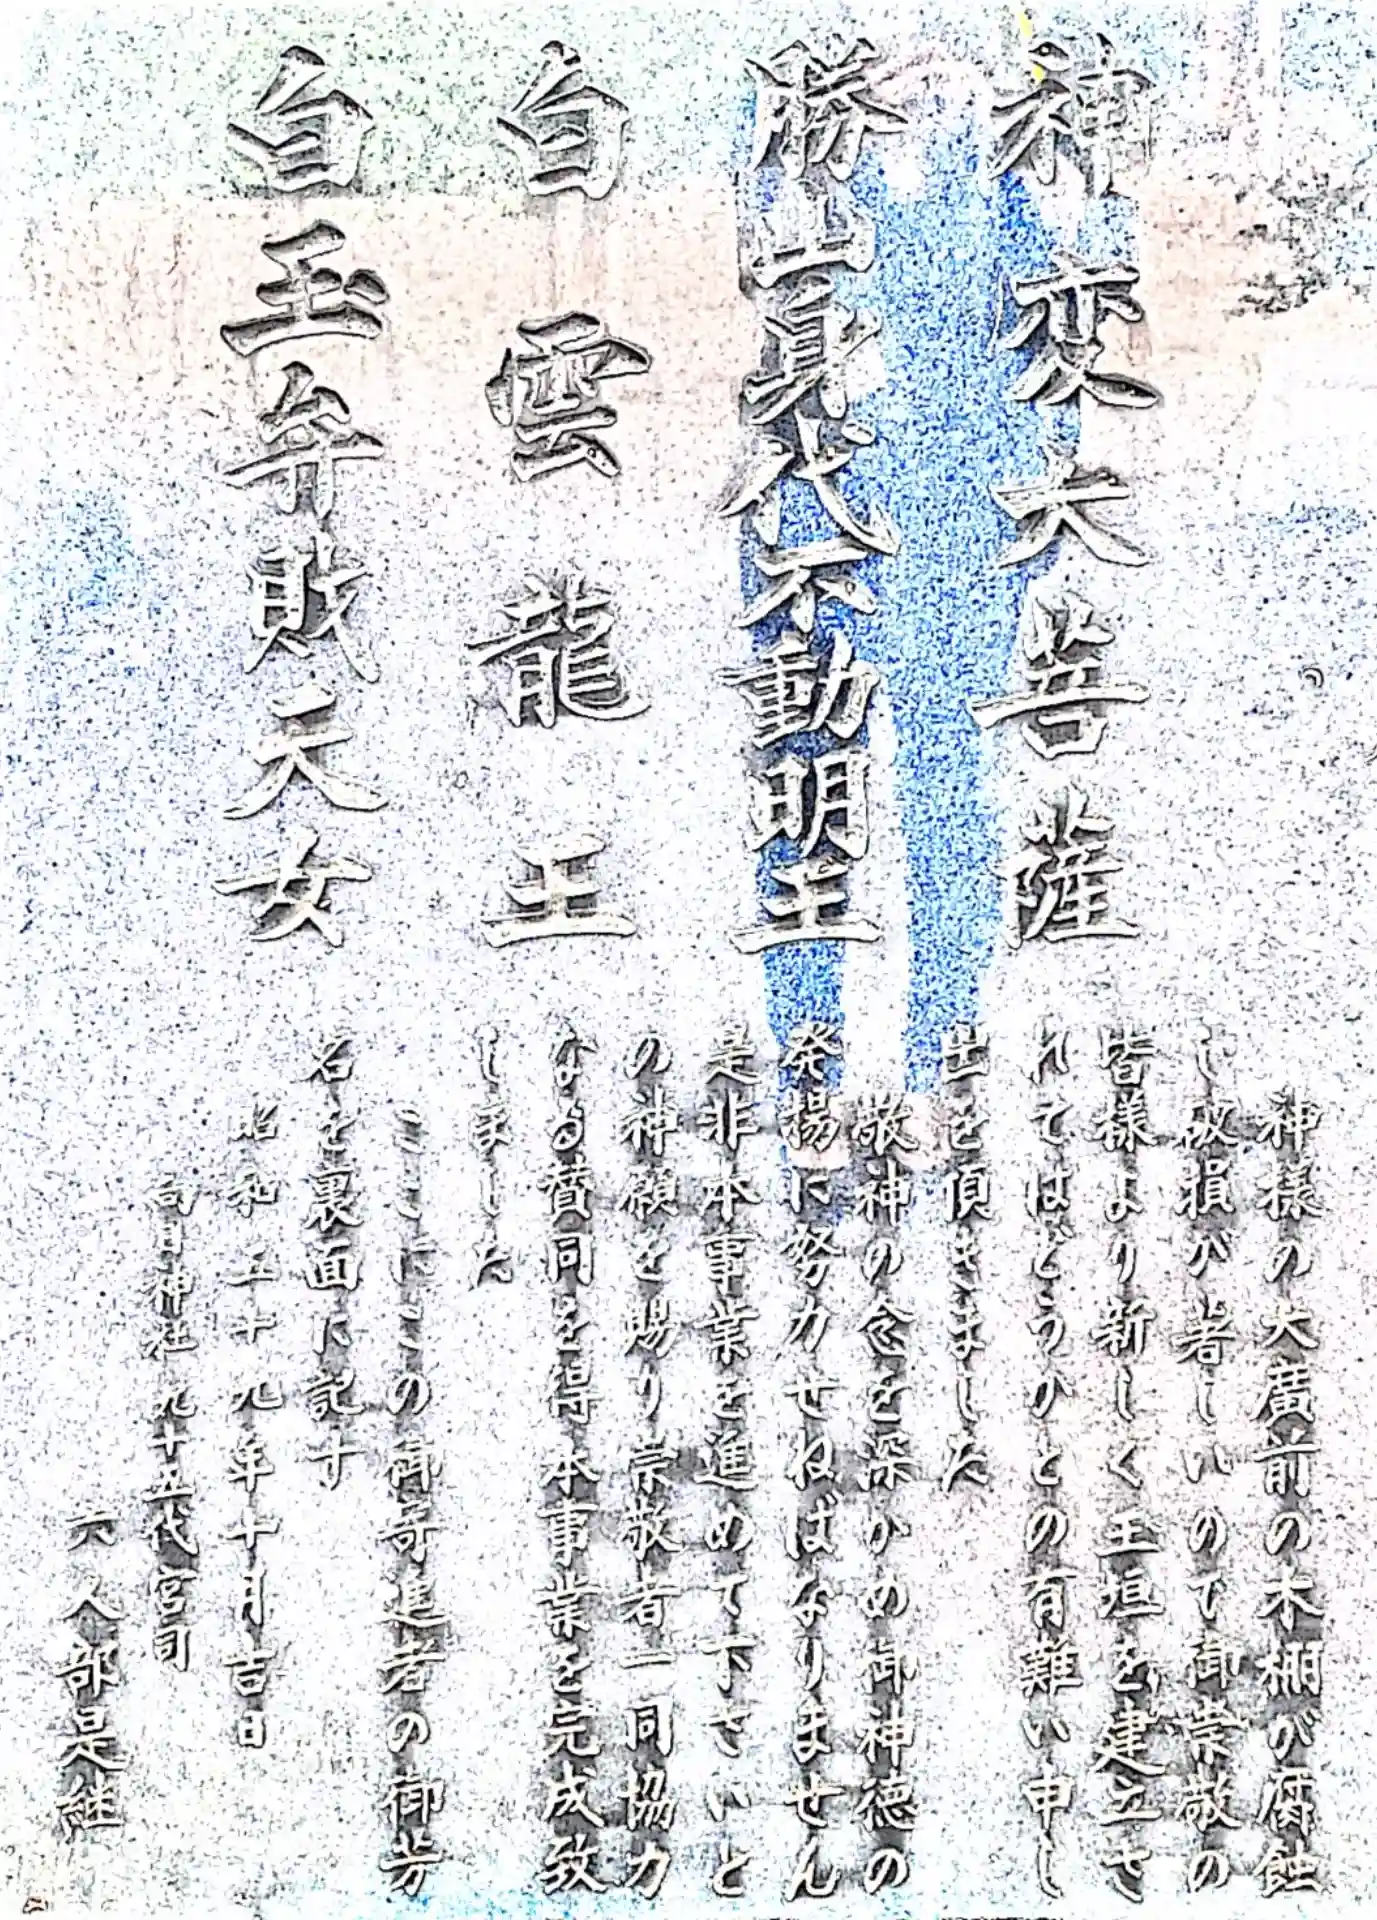 神変大菩薩
勝山身代不動明王
白雲龍王
白玉弁財天女
神様の大廣前の木柵が腐蝕
し破損が著しいので御崇敬の
皆様より新しく玉垣を建立さ
れてはどうかとの有難い申し
出を頂きました
敬神の念を深かめ御神徳の
発揚に努力せねばなりません
是非本事業を進めて下さいと
の神願を賜り崇敬者一同協力
なる賛同を得本事業を完成致
しました
ここにこの御寄進者の御芳
名を裏面に記す
昭和五十九年十月吉日
神社九十五代宮司
六人部是継